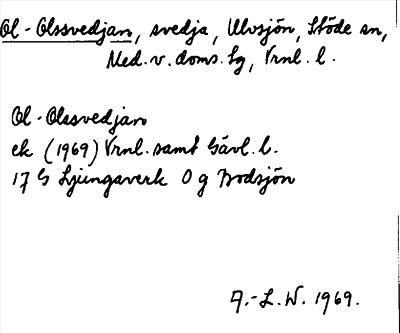 Ol-Olssvedjan, svedja, Ulvsjön, Stöde sn,
Med. v. doms. hg, Vrnl. l.
Ol-Olssvedjan
ek (1969) Vrnl. samt Gävl. l.
17 G Ljungaverk 0 g Brodsjön
A.-L. W. 1969.